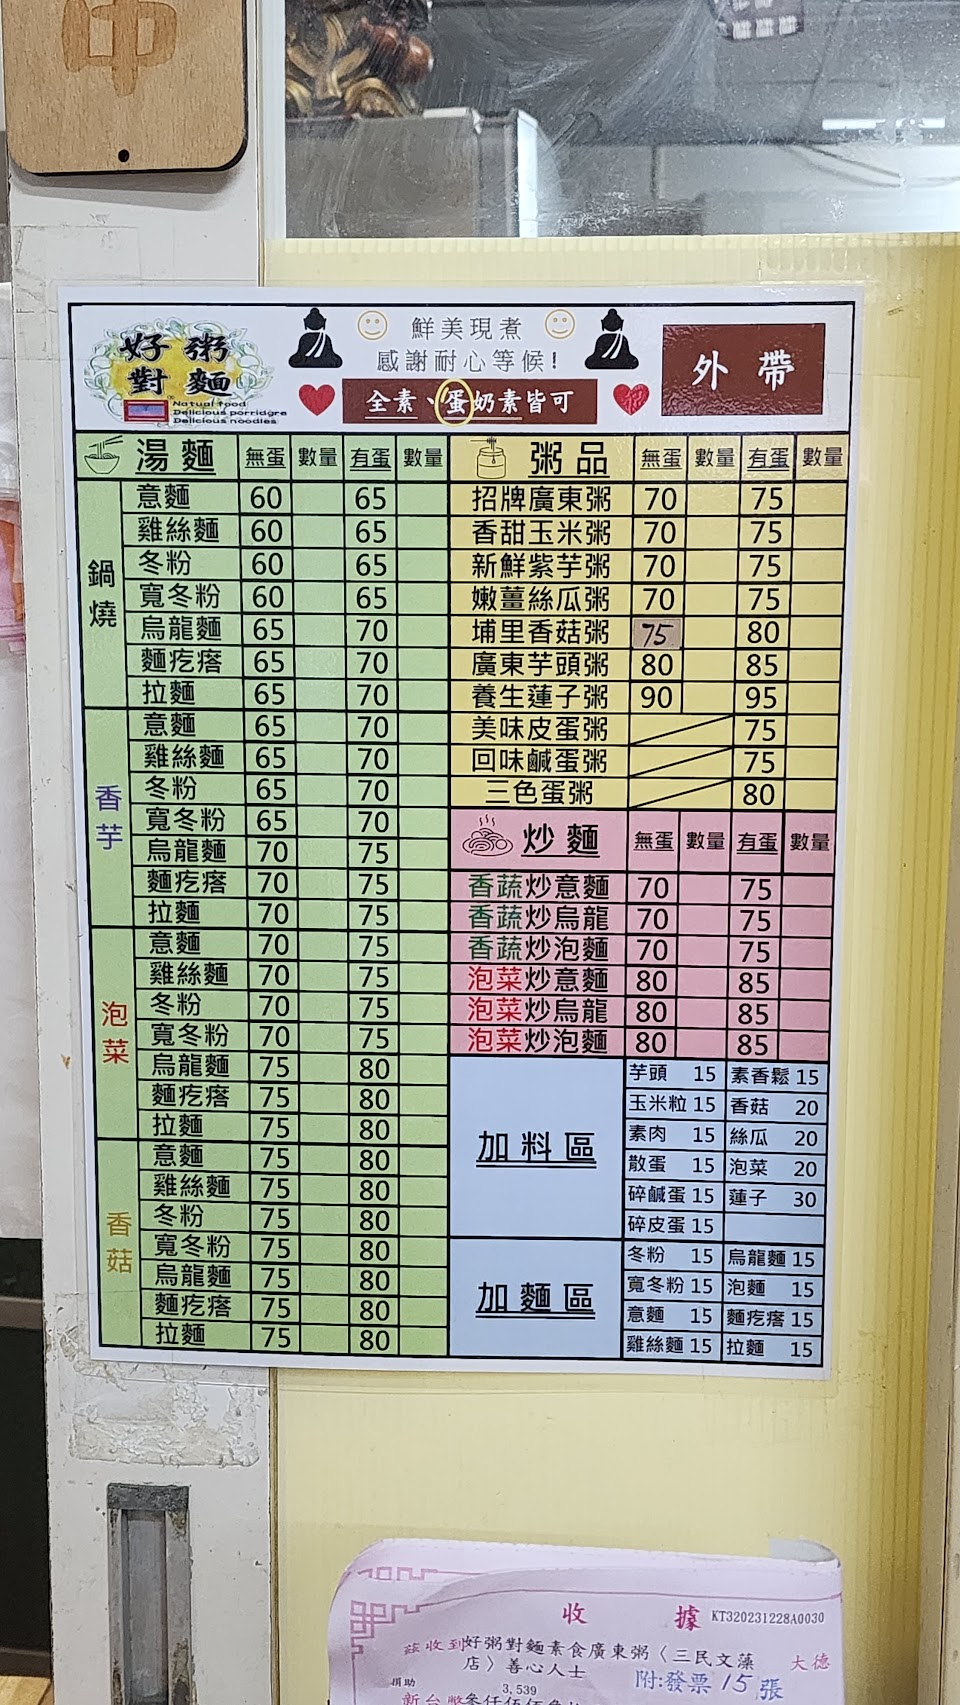 中
好粥
對麵
Natual food
Delicious porridgre
Delicious noodles
鮮美現煮
感謝耐心等候!
全素、蛋奶素皆可
外帶
湯麵 無蛋 數量 有蛋 數量
鍋燒
意麵 60 65
雞絲麵 60 65
冬粉 60 65
寬冬粉 60 65
烏龍麵 65 70
麵疙瘩 65 70
拉麵 65 70
香芋
意麵 65 70
雞絲麵 65 70
冬粉 65 70
寬冬粉 65 70
烏龍麵 70 75
麵疙瘩 70 75
拉麵 70 75
泡菜
意麵 70 75
雞絲麵 70 75
冬粉 70 75
寬冬粉 70 75
烏龍麵 75 80
麵疙瘩 75 80
拉麵 75 80
香菇
意麵 75 80
雞絲麵 75 80
冬粉 75 80
寬冬粉 75 80
烏龍麵 75 80
麵疙瘩 75 80
拉麵 75 80
粥品 無蛋 數量 有蛋 數量
招牌廣東粥 70 75
香甜玉米粥 70 75
新鮮紫芋粥 70 75
嫩薑絲瓜粥 70 75
埔里香菇粥 75 80
廣東芋頭粥 80 85
養生蓮子粥 90 95
美味皮蛋粥 75
回味鹹蛋粥 75
三色蛋粥 80
炒麵 無蛋 數量 有蛋 數量
香蔬炒意麵 70 75
香蔬炒烏龍 70 75
香蔬炒泡麵 70 75
泡菜炒意麵 80 85
泡菜炒烏龍 80 85
泡菜炒泡麵 80 85
加料區
芋頭 15 素香鬆 15
玉米粒 15 香菇 20
素肉 15 絲瓜 20
散蛋 15 泡菜 20
碎鹹蛋 15 蓮子 30
碎皮蛋 15
加麵區
冬粉 15 烏龍麵 15
寬冬粉 15 泡麵 15
意麵 15 麵疙瘩 15
雞絲麵 15 拉麵 15
收據 KT320231228A0030
茲收到好粥對麵素食廣東粥〈三民文藻
店〉善心人士 大德
附:發票15張
捐助
3,539
新台幣參仟伍佰